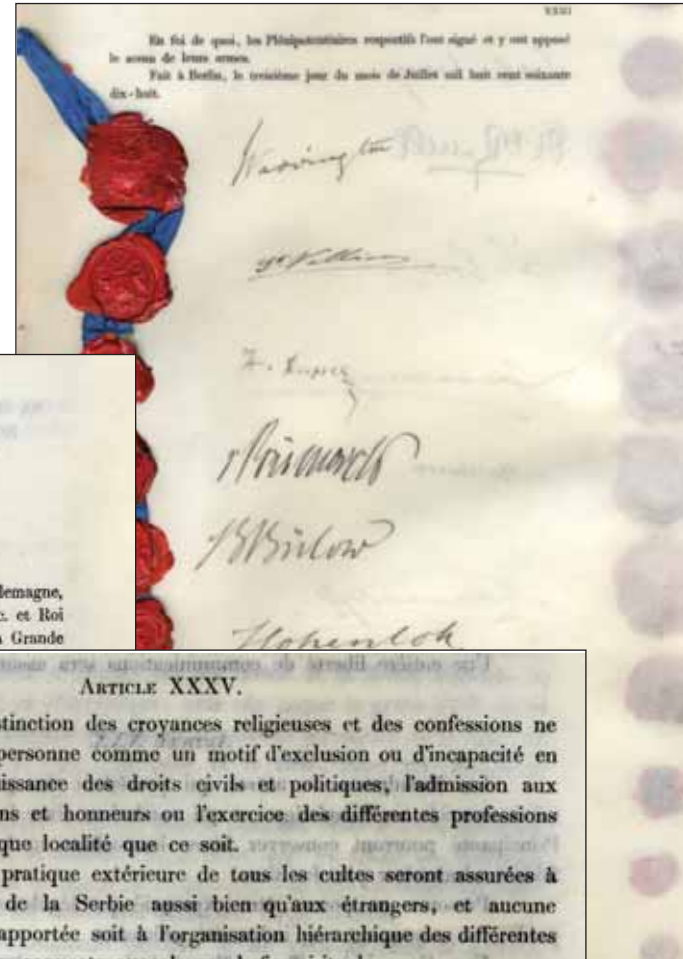 XXXI
En foi de quoi, les Plénipotentiaires respectifs l'ont signé et y ont apposé
le sceau de leurs armes.
Fait à Berlin, le treizième jour du mois de Juillet mil huit cent soixante
dix-huit.
Waddington
St Vallier
F. Desprez
v Bismarck
B Bülow
Hohenloh
lemagne,
c. et Roi
Grande
Une entière liberté de communications sera
ARTICLE XXXV.
stinction des croyances religieuses et des confessions ne
personne comme un motif d'exclusion ou d'incapacité en
uissance des droits civils et politiques, l'admission aux
ns et honneurs ou l'exercice des différentes professions
que localité que ce soit.
pratique extérieure de tous les cultes seront assurées à
de la Serbie aussi bien qu'aux étrangers, et aucune
apportée soit à l'organisation hiérarchique des différentes